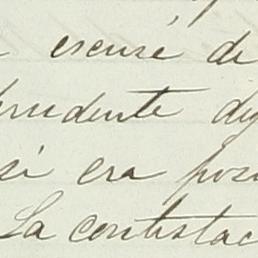 escusé de
prudente
si era
La contestac